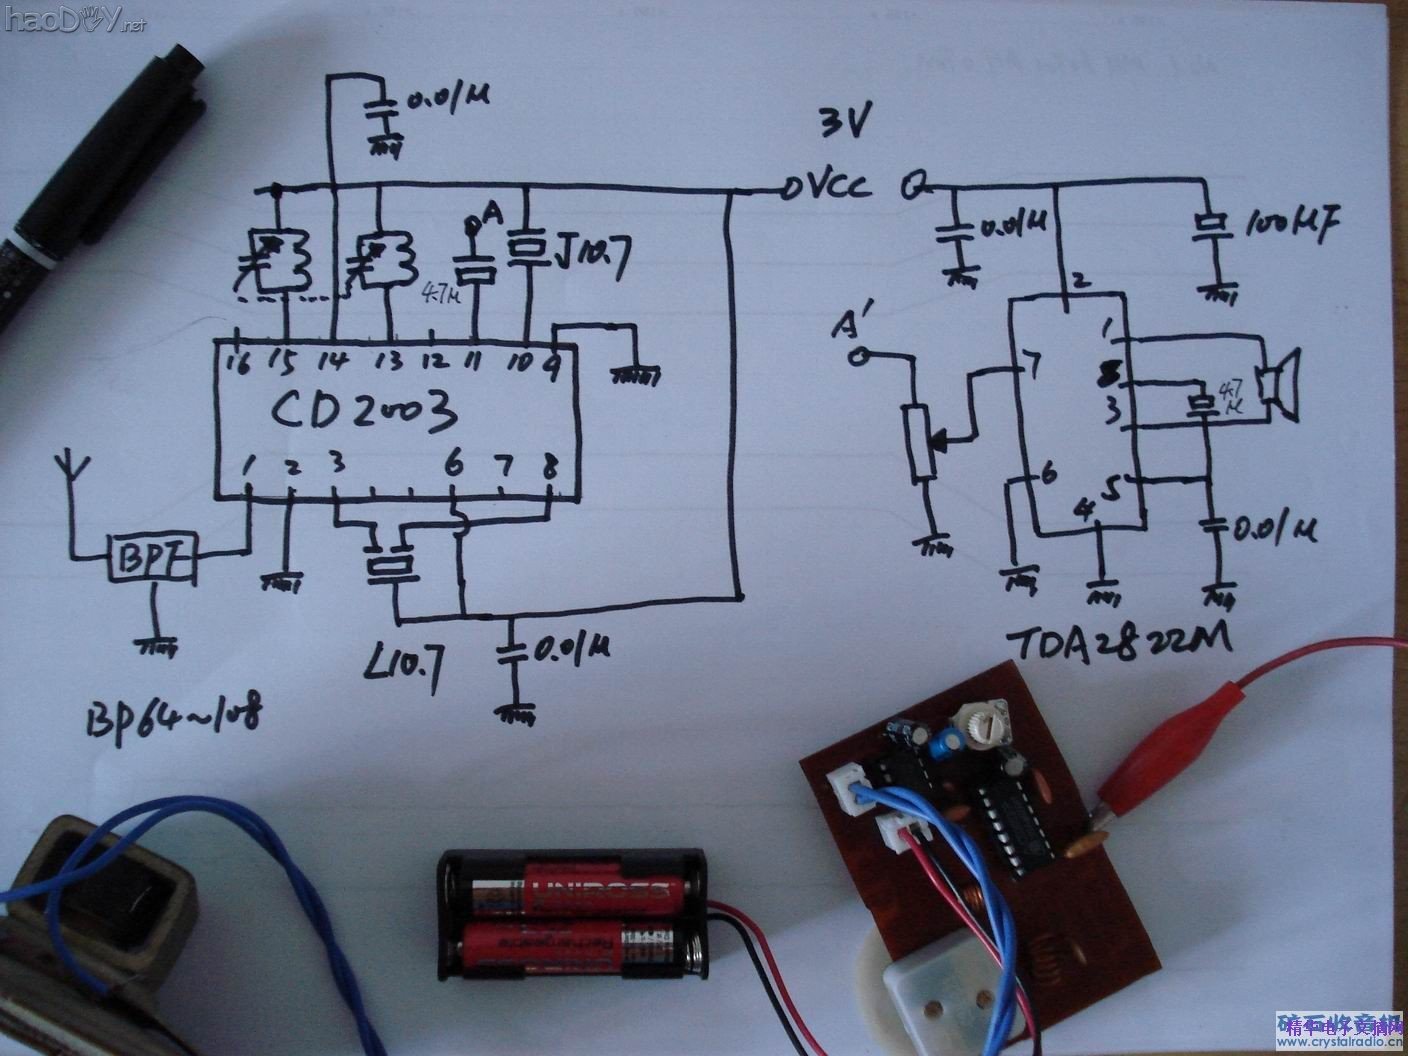 haoDIY.net
0.01μ
3V
VCC
0.01μ
100μF
A
J10.7
4.7μ
A'
2
1
7
8
4.7μ
3
6
5
4
0.01μ
TDA2822M
16 15 14 13 12 11 10 9
CD2003
1 2 3 6 7 8
BPF
L10.7
0.01μ
BP64~108
UNIROSS
Rechargeable
矿石收音机
www.crystalradio.cn